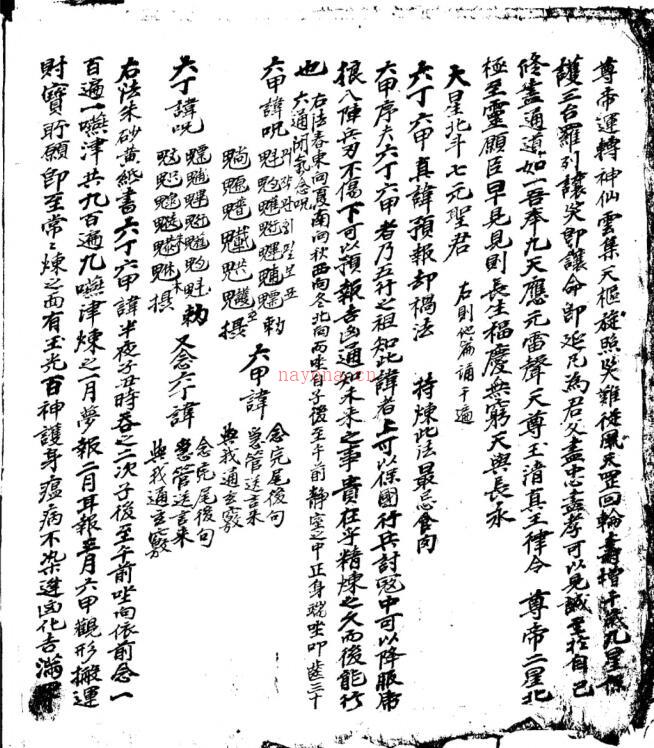 尊帝運轉神仙雲集天樞旋照災難從風天罡回輪壽增千歲九星保
護三台羅列讓災即讓命即延凡為君父盡中盡孝可以見誠至於自己
修盡通道如一吾奉九天應元雷聲天尊玉清真王律令 尊帝二星北
極至靈願臣早見見則長生福慶無窮天與長永
天星北斗七元聖君 右則他篇誦千遍
六丁六甲真諱預報却禍法 持煉此法最忌食肉
六甲序夫六丁六甲者乃五行之祖知此諱者上可以保國行兵討冠中可以降服虎
狼八陣兵刃不傷下可以預報吉凶通知未來之事貴在乎精煉之久而後能行
也 右法春東向夏南向秋西向冬北向而坐子後至午前靜室之中正身端坐叩齒三十
六通閉氣念咒
六甲諱咒 勅
攝
六甲諱 念完尾後句
急管送言來
與我通玄竅
六丁諱咒 勅
攝
又念六丁諱 念完尾後句
急管送言來
與我通玄竅
右法朱砂黃紙書六丁六甲諱半夜子丑時吞之二次子後至午前坐向依前念一
百遍一嚥津共九百遍九嚥津煉之一月夢報二月耳報三月六甲觀形搬運
財寶貯願即至常〻煉之而有玉光百神護身瘟病不染逢凶化吉滿
naypna.cn